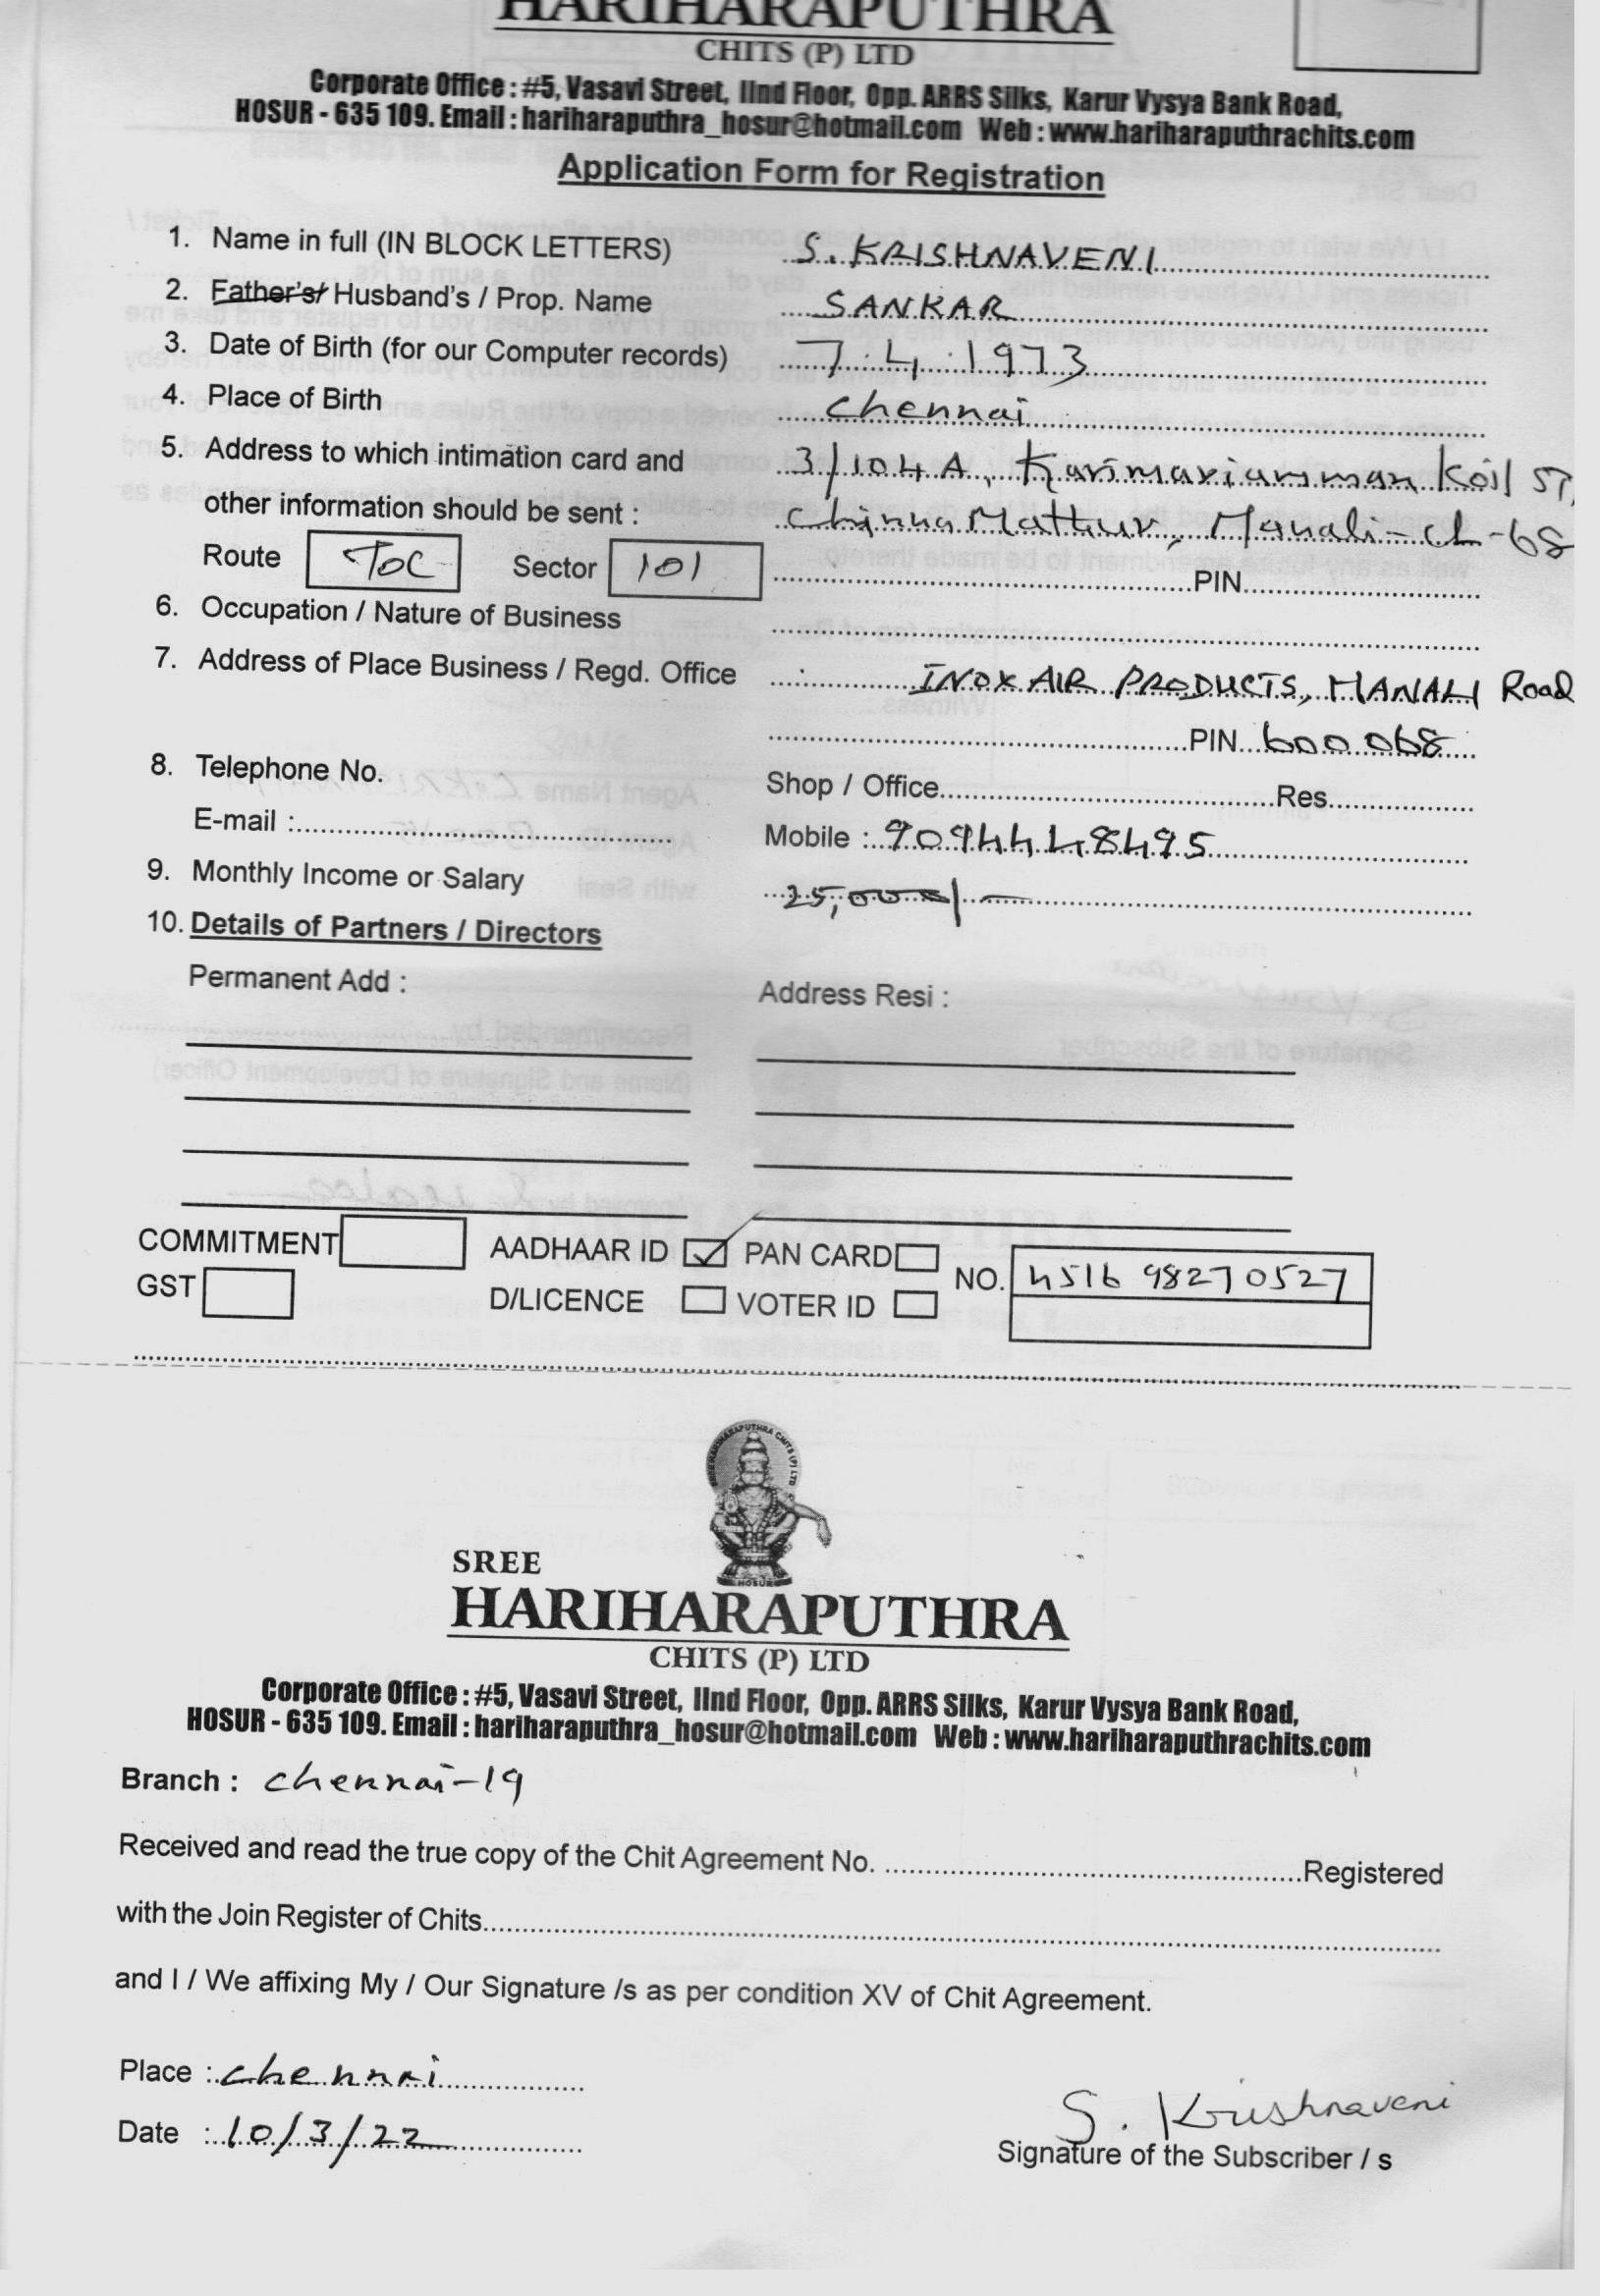 HARIHARAPUTHRA
CHITS (P) LTD
Corporate Office : #5, Vasavi Street, IInd Floor, Opp. ARRS Silks, Karur Vysya Bank Road,
HOSUR - 635 109. Email : hariharaputhra_hosur@hotmail.com Web : www.hariharaputhrachits.com
Application Form for Registration
1. Name in full (IN BLOCK LETTERS) S. KRISHNAVENI
2. Father's / Husband's / Prop. Name SANKAR
3. Date of Birth (for our Computer records) 7.4.1973
4. Place of Birth chennai
5. Address to which intimation card and 3/104A, Karimariamman Koil ST,
other information should be sent : Chinna Mathur, Manali-ch-68
Route TOC Sector 101 PIN
6. Occupation / Nature of Business
7. Address of Place Business / Regd. Office INOX AIR PRODUCTS, MANALI Road
PIN 600 068
8. Telephone No. Shop / Office Res.
E-mail : Mobile : 9094448495
9. Monthly Income or Salary 25,000/-
10. Details of Partners / Directors
Permanent Add : Address Resi :
COMMITMENT AADHAAR ID ✓ PAN CARD NO. 4516 98270527
GST D/LICENCE VOTER ID
SREE
HARIHARAPUTHRA
CHITS (P) LTD
Corporate Office : #5, Vasavi Street, IInd Floor, Opp. ARRS Silks, Karur Vysya Bank Road,
HOSUR - 635 109. Email : hariharaputhra_hosur@hotmail.com Web : www.hariharaputhrachits.com
Branch : chennai-19
Received and read the true copy of the Chit Agreement No. Registered
with the Join Register of Chits
and I / We affixing My / Our Signature /s as per condition XV of Chit Agreement.
Place : chennai
Date : 10/3/22
S. Krishnaveni
Signature of the Subscriber / s